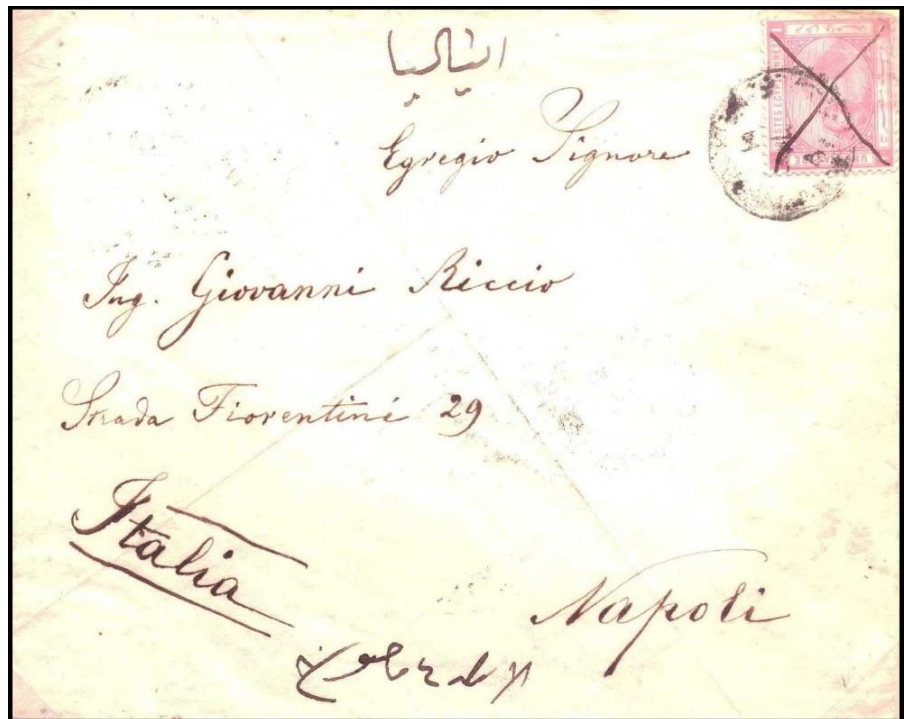 ايتاليا
Egregio Signore
Ing. Giovanni Riccio
Strada Fiorentini 29
Italia
Napoli